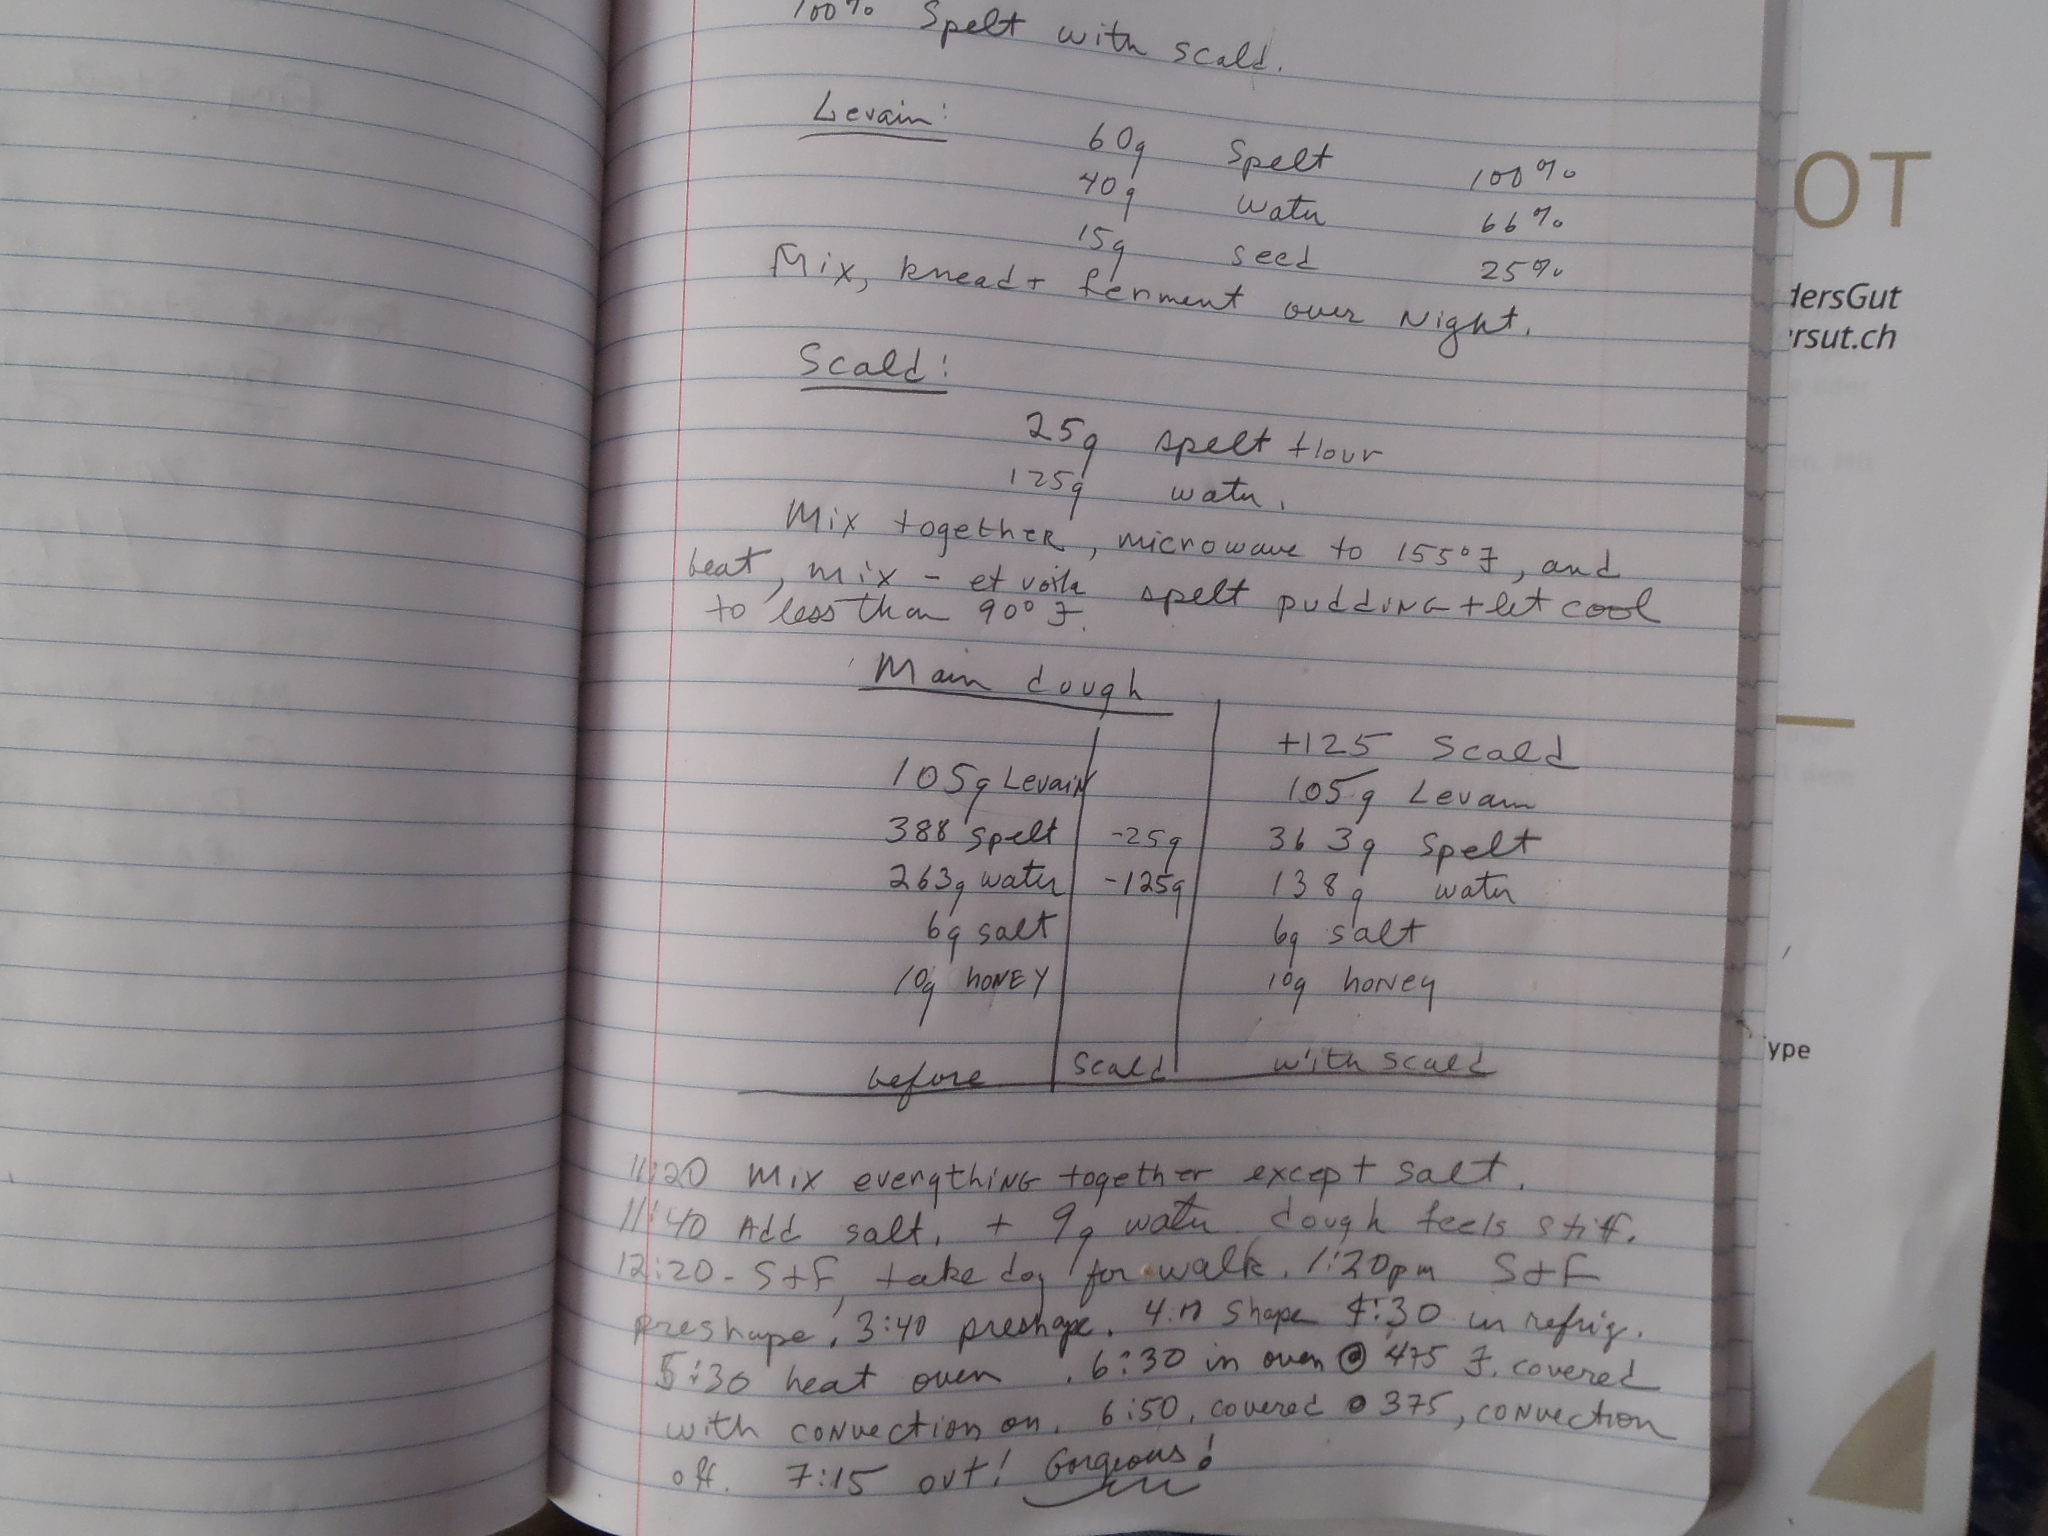 100% Spelt with scald.
Levain:
60g Spelt 100%
40g water 66%
15g seed 25%
Mix, knead + ferment over Night.
Scald:
25g spelt flour
125g water.
Mix together, microwave to 155°F, and
beat, mix - et voila spelt pudding + let cool
to less than 90°F.
Main dough
+125 Scald
105g Levain 105g Levain
388 spelt -25g 363g Spelt
263g water -125g 138g water
6g salt 6g salt
10g honey 10g honey
before Scald with scald
11:20 Mix everything together except salt.
11:40 Add salt, + 9g water. dough feels stiff.
12:20 - S+F, take dog for walk. 1:20pm S+F
preshape, 3:40 preshape. Shape 4:30 in refrig.
5:30 heat oven. 6:30 in oven @ 475 F. covered
with convection on. 6:50, covered @ 375, convection
off. 7:15 out! Gorgeous!
OT
dersGut
rsut.ch
ype